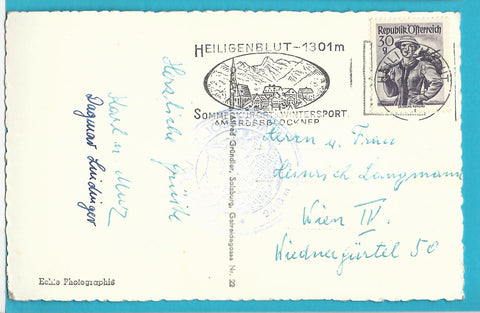 HEILIGENBLUT - 1301m
SOMMERKURORT WINTERSPORT
AM GROSSGLOCKNER
Republik Österreich
30
g
Herzliche Grüße
Karl u.
Dagmar Lindinger
Gründler, Salzburg, Getreidegasse Nr. 23
Herrn u. Frau
Heinrich Langmann
Wien IV.
Wiednergürtel 50
Echte Photographie